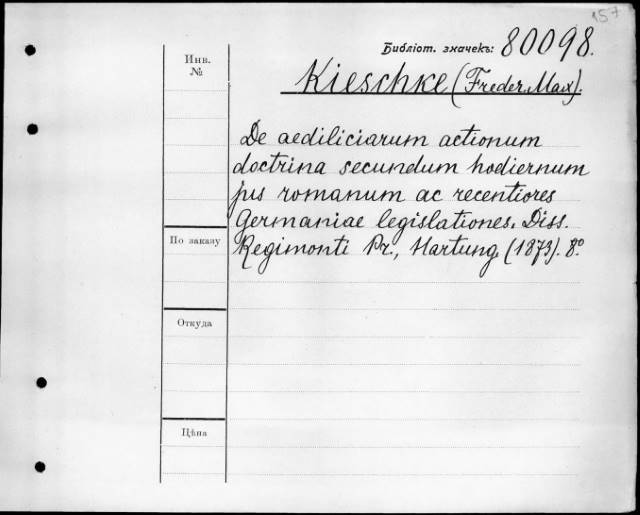 157
Библіот. значекъ: 80098.
Инв. №
Kieschke (Freder. Max).
De aediliciarum actionum
doctrina secundum hodiernum
jus romanum ac recentiores
Germaniae legislationes. Diss.
По заказу
Regimonti Pr., Hartung, (1873). 8º
Откуда
Цѣна